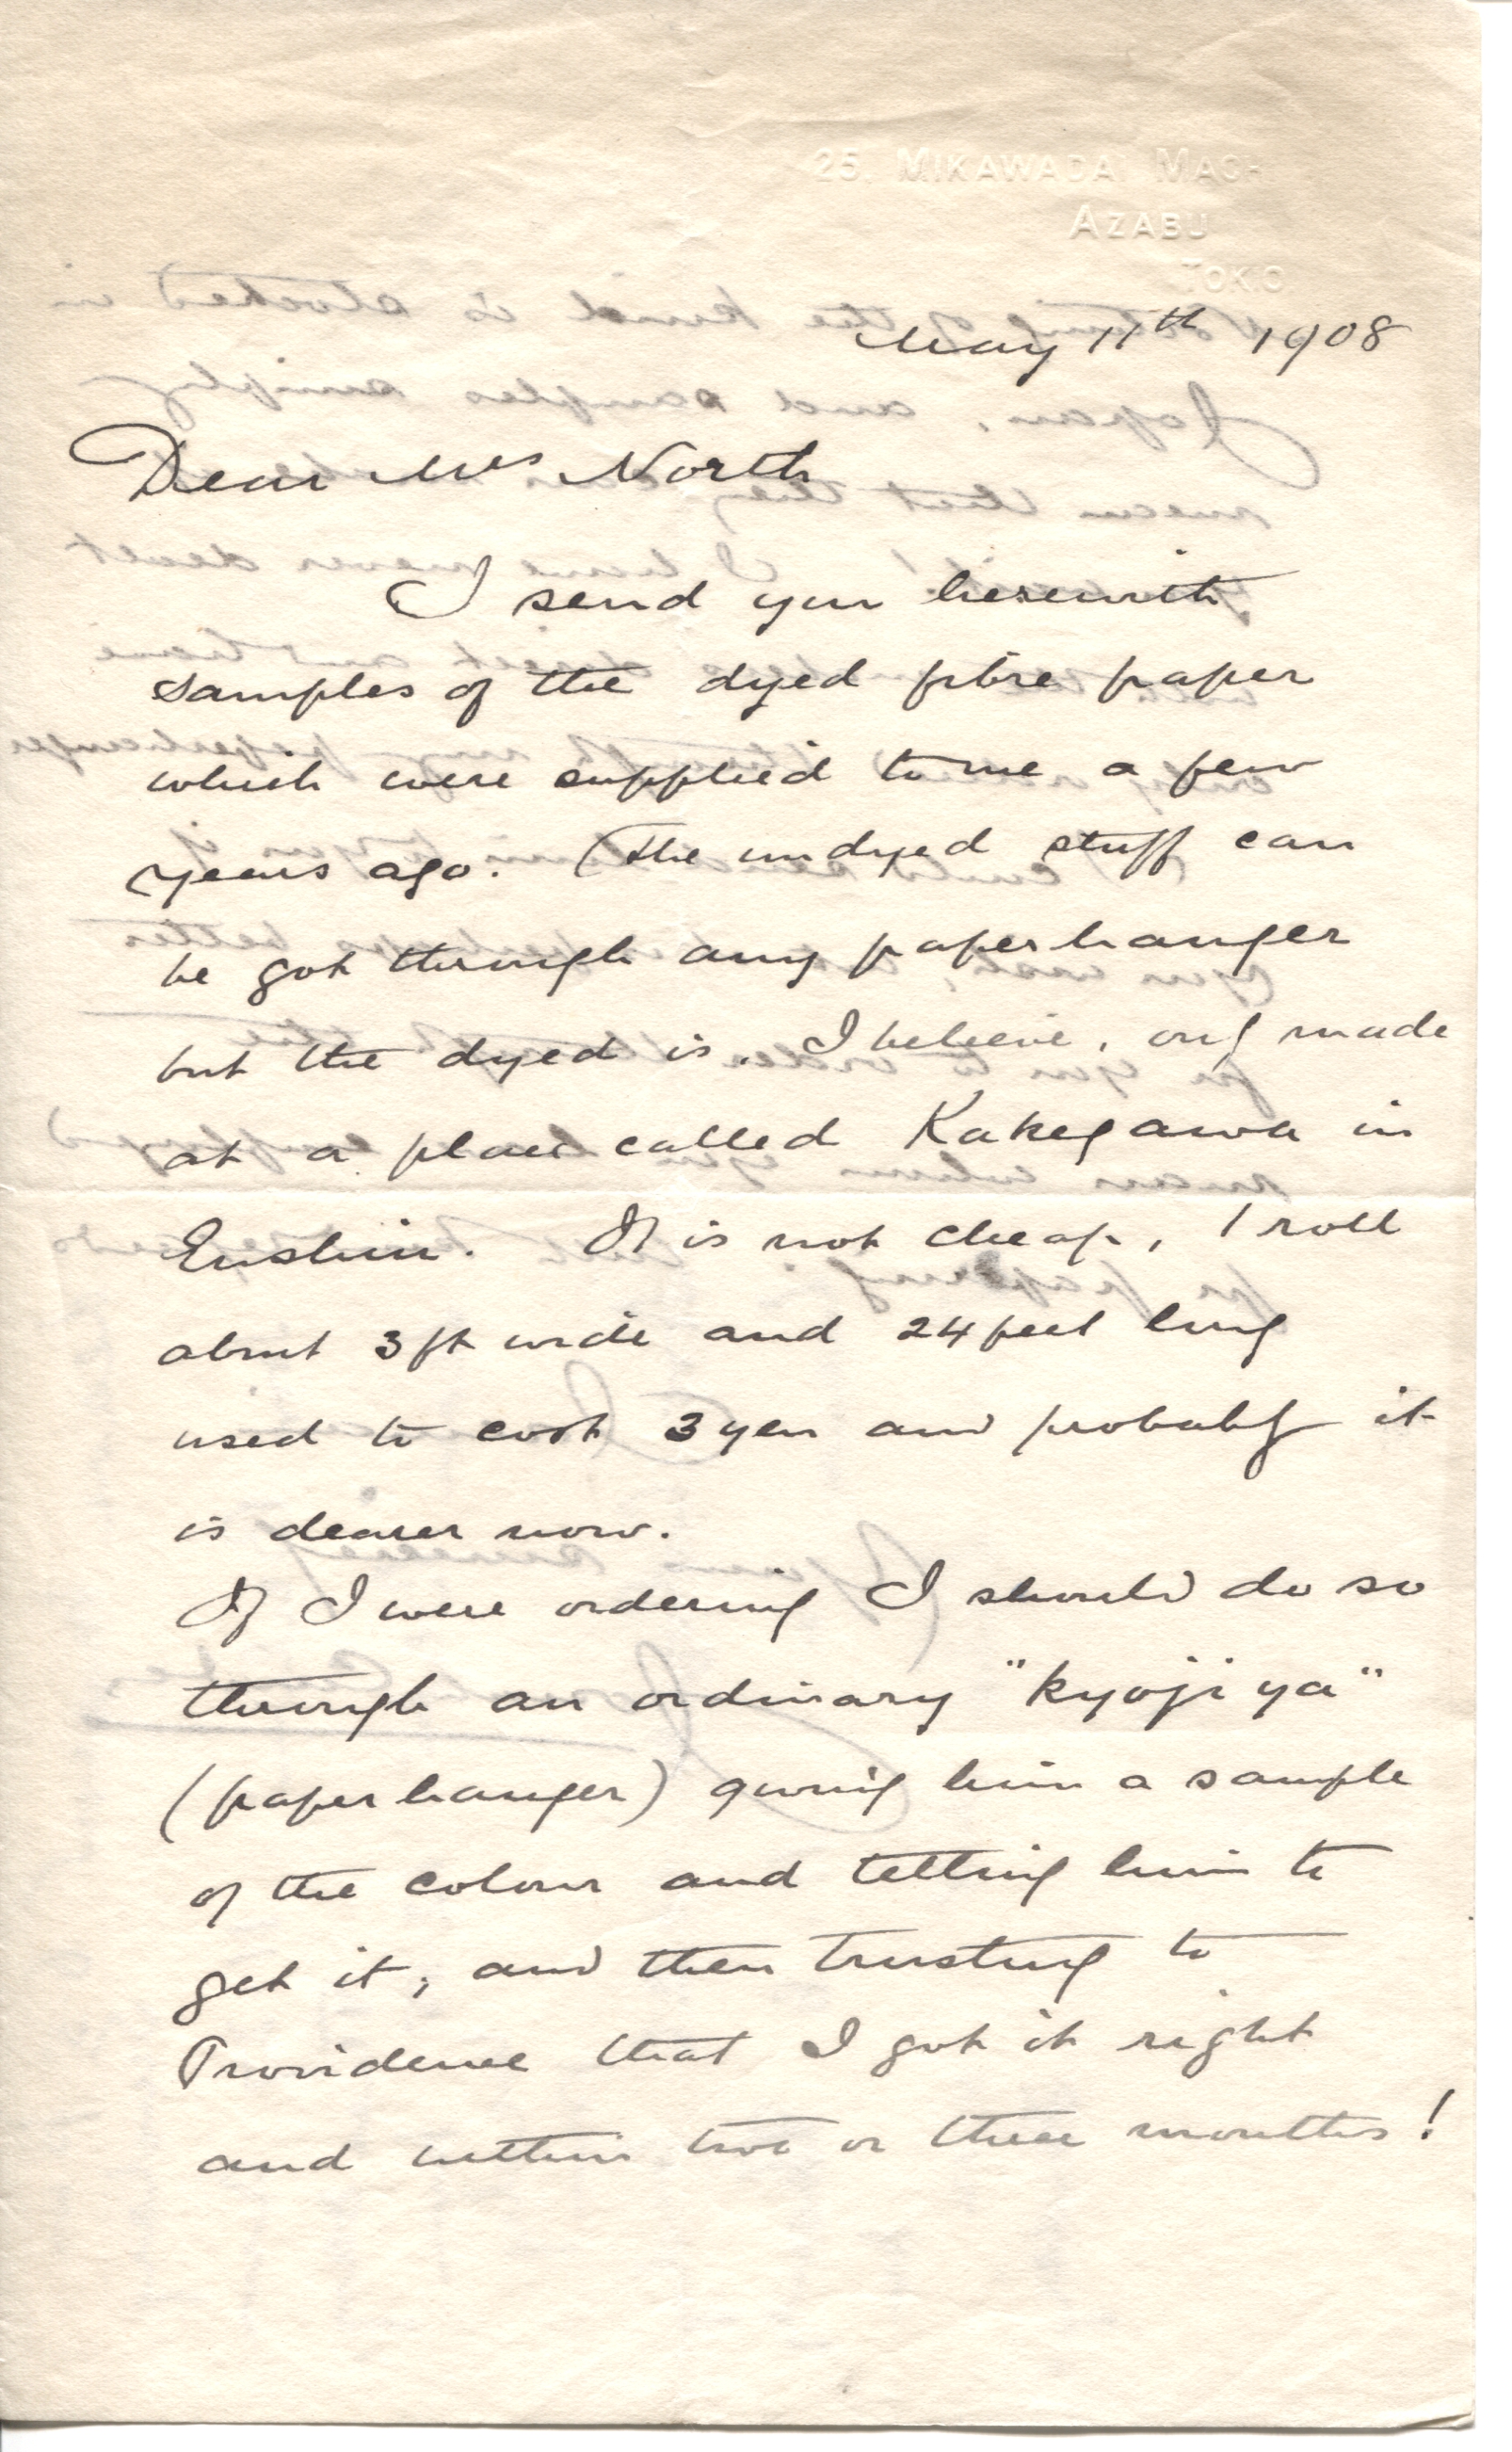 25, MIKAWADAI MACHI
AZABU
TOKIO
May 11th 1908
Dear Mrs North
I send you herewith
samples of the dyed fibre paper
which were supplied to me a few
years ago. (The undyed stuff can
be got through any paperhanger
but the dyed is, I believe, only made
at a place called Kakegawa in
Enshiu. It is not cheap, 1 roll
about 3 ft wide and 24 feet long
used to cost 3 yen and probably it
is dearer now.
If I were ordering I should do so
through an ordinary "kyoji ya"
(paperhanger) giving him a sample
of the colour and telling him to
get it, and then trusting to
Providence that I got it right
and within two or three months!